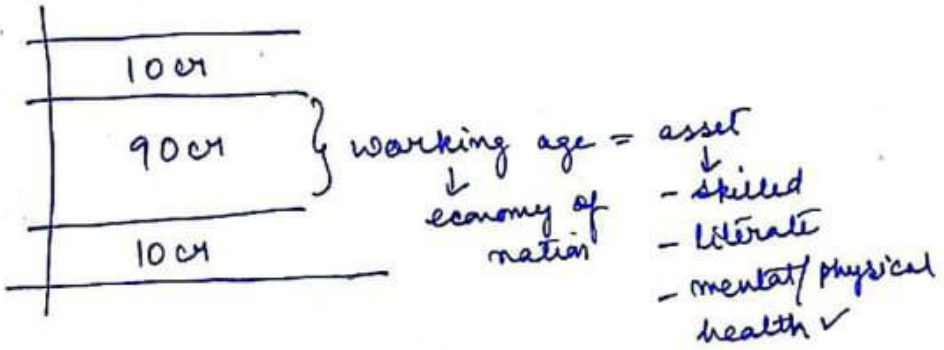 10 cr
90 cr } working age = asset
↓ ↓
economy of nation
- skilled
- literate
- mental/physical health ✓
10 cr